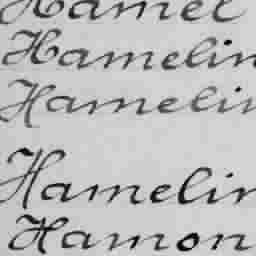 Hamel
Hamelin
Hamelin
Hamelin
Hamon